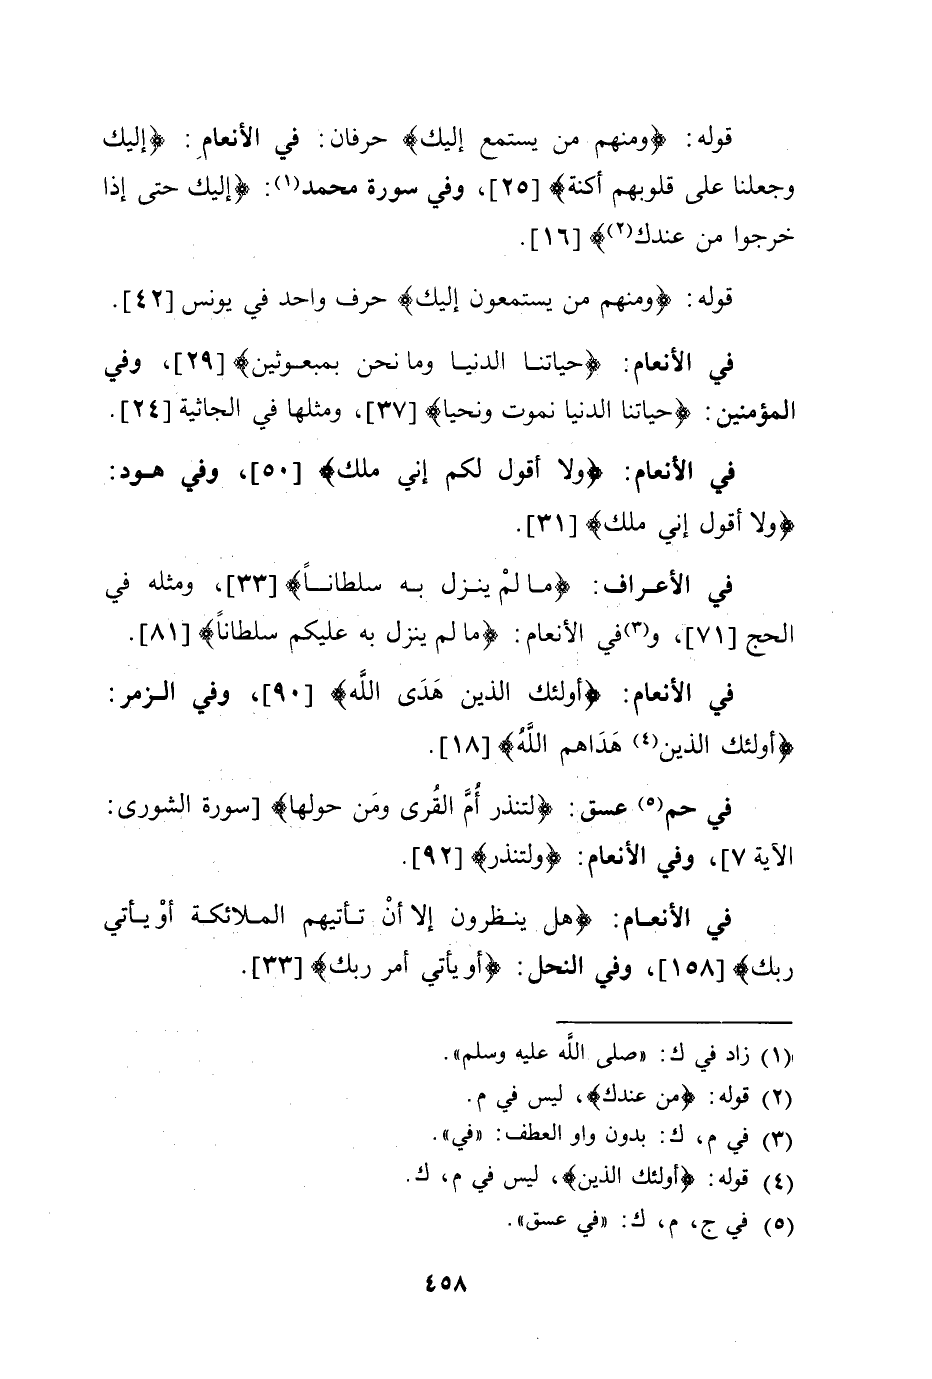 قوله: ﴿ومنهم من يستمع إليك﴾ حرفان: في الأنعام: ﴿إليك
وجعلنا على قلوبهم أكنة﴾ [٢٥]، وفي سورة محمد(١): ﴿إليك حتى إذا
خرجوا من عندك(٢)﴾ [١٦].
قوله: ﴿ومنهم من يستمعون إليك﴾ حرف واحد في يونس [٤٢].
في الأنعام: ﴿حياتنا الدنيا وما نحن بمبعوثين﴾ [٢٩]، وفي
المؤمنين: ﴿حياتنا الدنيا نموت ونحيا﴾ [٣٧]، ومثلها في الجاثية [٢٤].
في الأنعام: ﴿ولا أقول لكم إني ملك﴾ [٥٠]، وفي هود:
﴿ولا أقول إني ملك﴾ [٣١].
في الأعراف: ﴿ما لمْ ينزل به سلطاناً﴾ [٣٣]، ومثله في
الحج [٧١]، و(٣)في الأنعام: ﴿ما لم ينزل به عليكم سلطاناً﴾ [٨١].
في الأنعام: ﴿أولئك الذين هَدَى اللَّه﴾ [٩٠]، وفي الزمر:
﴿أولئك الذين(٤) هَدَاهم اللَّهُ﴾ [١٨].
في حم(٥) عسق: ﴿لتنذر أُمَّ القُرى ومَن حولها﴾ [سورة الشورى:
الآية ٧]، وفي الأنعام: ﴿ولتنذر﴾ [٩٢].
في الأنعام: ﴿هل ينظرون إلا أنْ تأتيهم الملائكة أوْ يأتي
ربك﴾ [١٥٨]، وفي النحل: ﴿أو يأتي أمر ربك﴾ [٣٣].
(١) زاد في ك: «صلى اللَّه عليه وسلم».
(٢) قوله: ﴿من عندك﴾، ليس في م.
(٣) في م، ك: بدون واو العطف: «في».
(٤) قوله: ﴿أولئك الذين﴾، ليس في م، ك.
(٥) في ج، م، ك: «في عسق».
٤٥٨